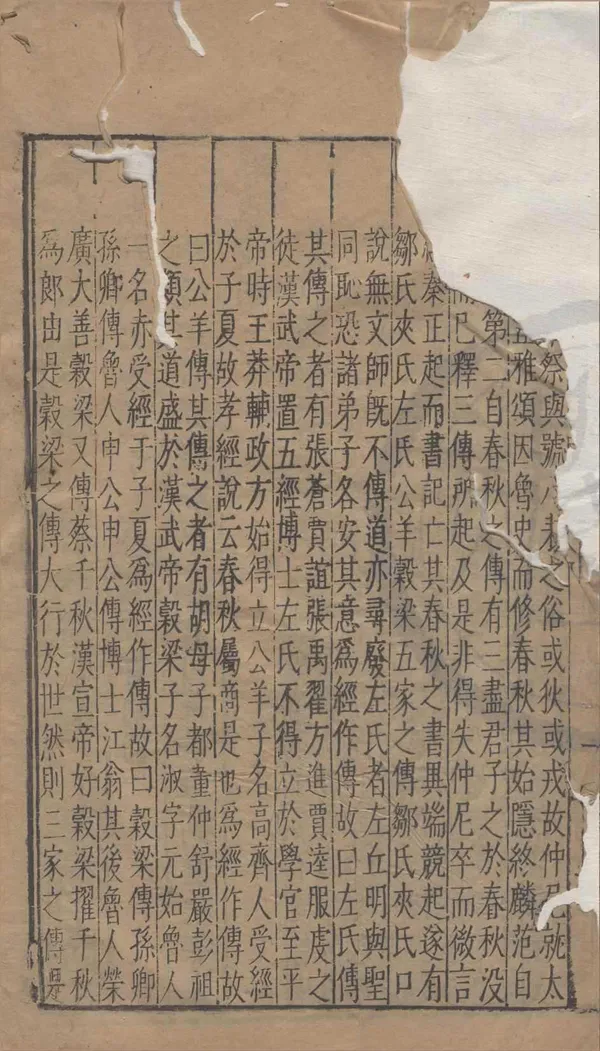 祭與號八表之俗或狄或戎故仲尼就太
雅頌因魯史而修春秋其始隱終麟范自
第二自春秋之傳有三盡君子之於春秋没
而已釋三傳所起及是非得失仲尼卒而微言
秦正起而書記亡其春秋之書異端競起遂有
鄒氏夾氏左氏公羊穀梁五家之傳鄒氏夾氏口
說無文師旣不傳道亦尋廢左氏者左丘明與聖
同恥恐諸弟子各安其意爲經作傳故曰左氏傳
其傳之者有張蒼賈誼張禹翟方進賈逵服虔之
徒漢武帝置五經博士左氏不得立於學官至平
帝時王莽輔政方始得立公羊子名高齊人受經
於子夏故孝經說云春秋屬商是也爲經作傳故
曰公羊傳其傳之者有胡母子都董仲舒嚴彭祖
之類其道盛於漢武帝穀梁子名淑字元始魯人
一名赤受經于子夏爲經作傳故曰穀梁傳孫卿
孫卿傳魯人申公申公傳博士江翁其後魯人榮
廣大善穀梁又傳蔡千秋漢宣帝好穀梁擢千秋
爲郎由是穀梁之傳大行於世然則三家之傳是